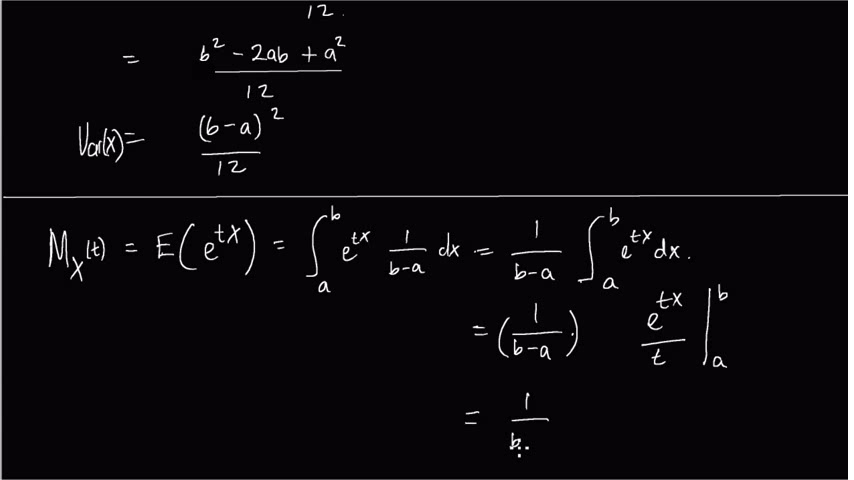 12.
= b² - 2ab + a² / 12
Var(X) = (b-a)² / 12
M_X(t) = E(e^{tX}) = ∫_a^b e^{tx} 1/(b-a) dx = 1/(b-a) ∫_a^b e^{tx} dx.
= (1/(b-a)) e^{tx}/t |_a^b
= 1/b